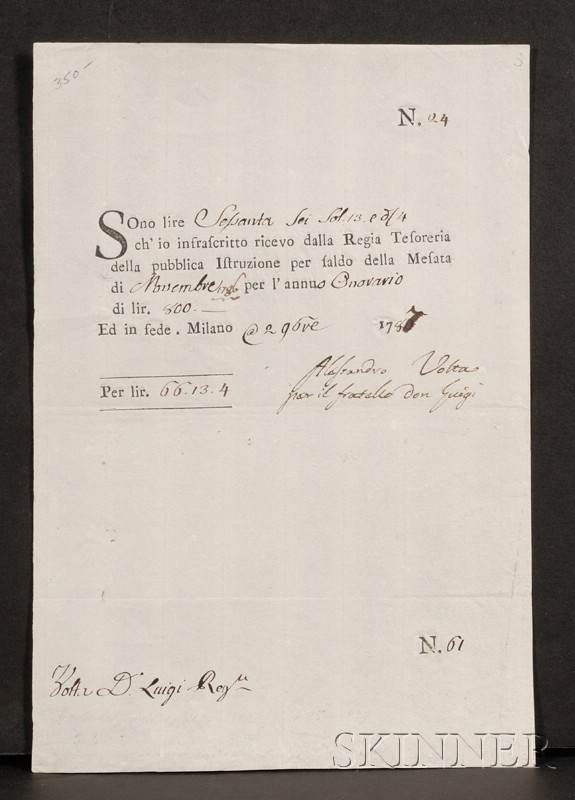 350-
N. 24
SOno lire Seſsanta Sei Sol. 13. e d/4
ch' io infraſcritto ricevo dalla Regia Teſoreria
della pubblica Iſtruzione per ſaldo della Meſata
di Novembre per l' annuo Onorario
di lir. 800.
Ed in fede. Milano @ 2 9bre 1787
Aleſsandro Volta
per il fratello don Luigi
Per lir. 66. 13. 4
N. 61
Volta D. Luigi
SKINNER